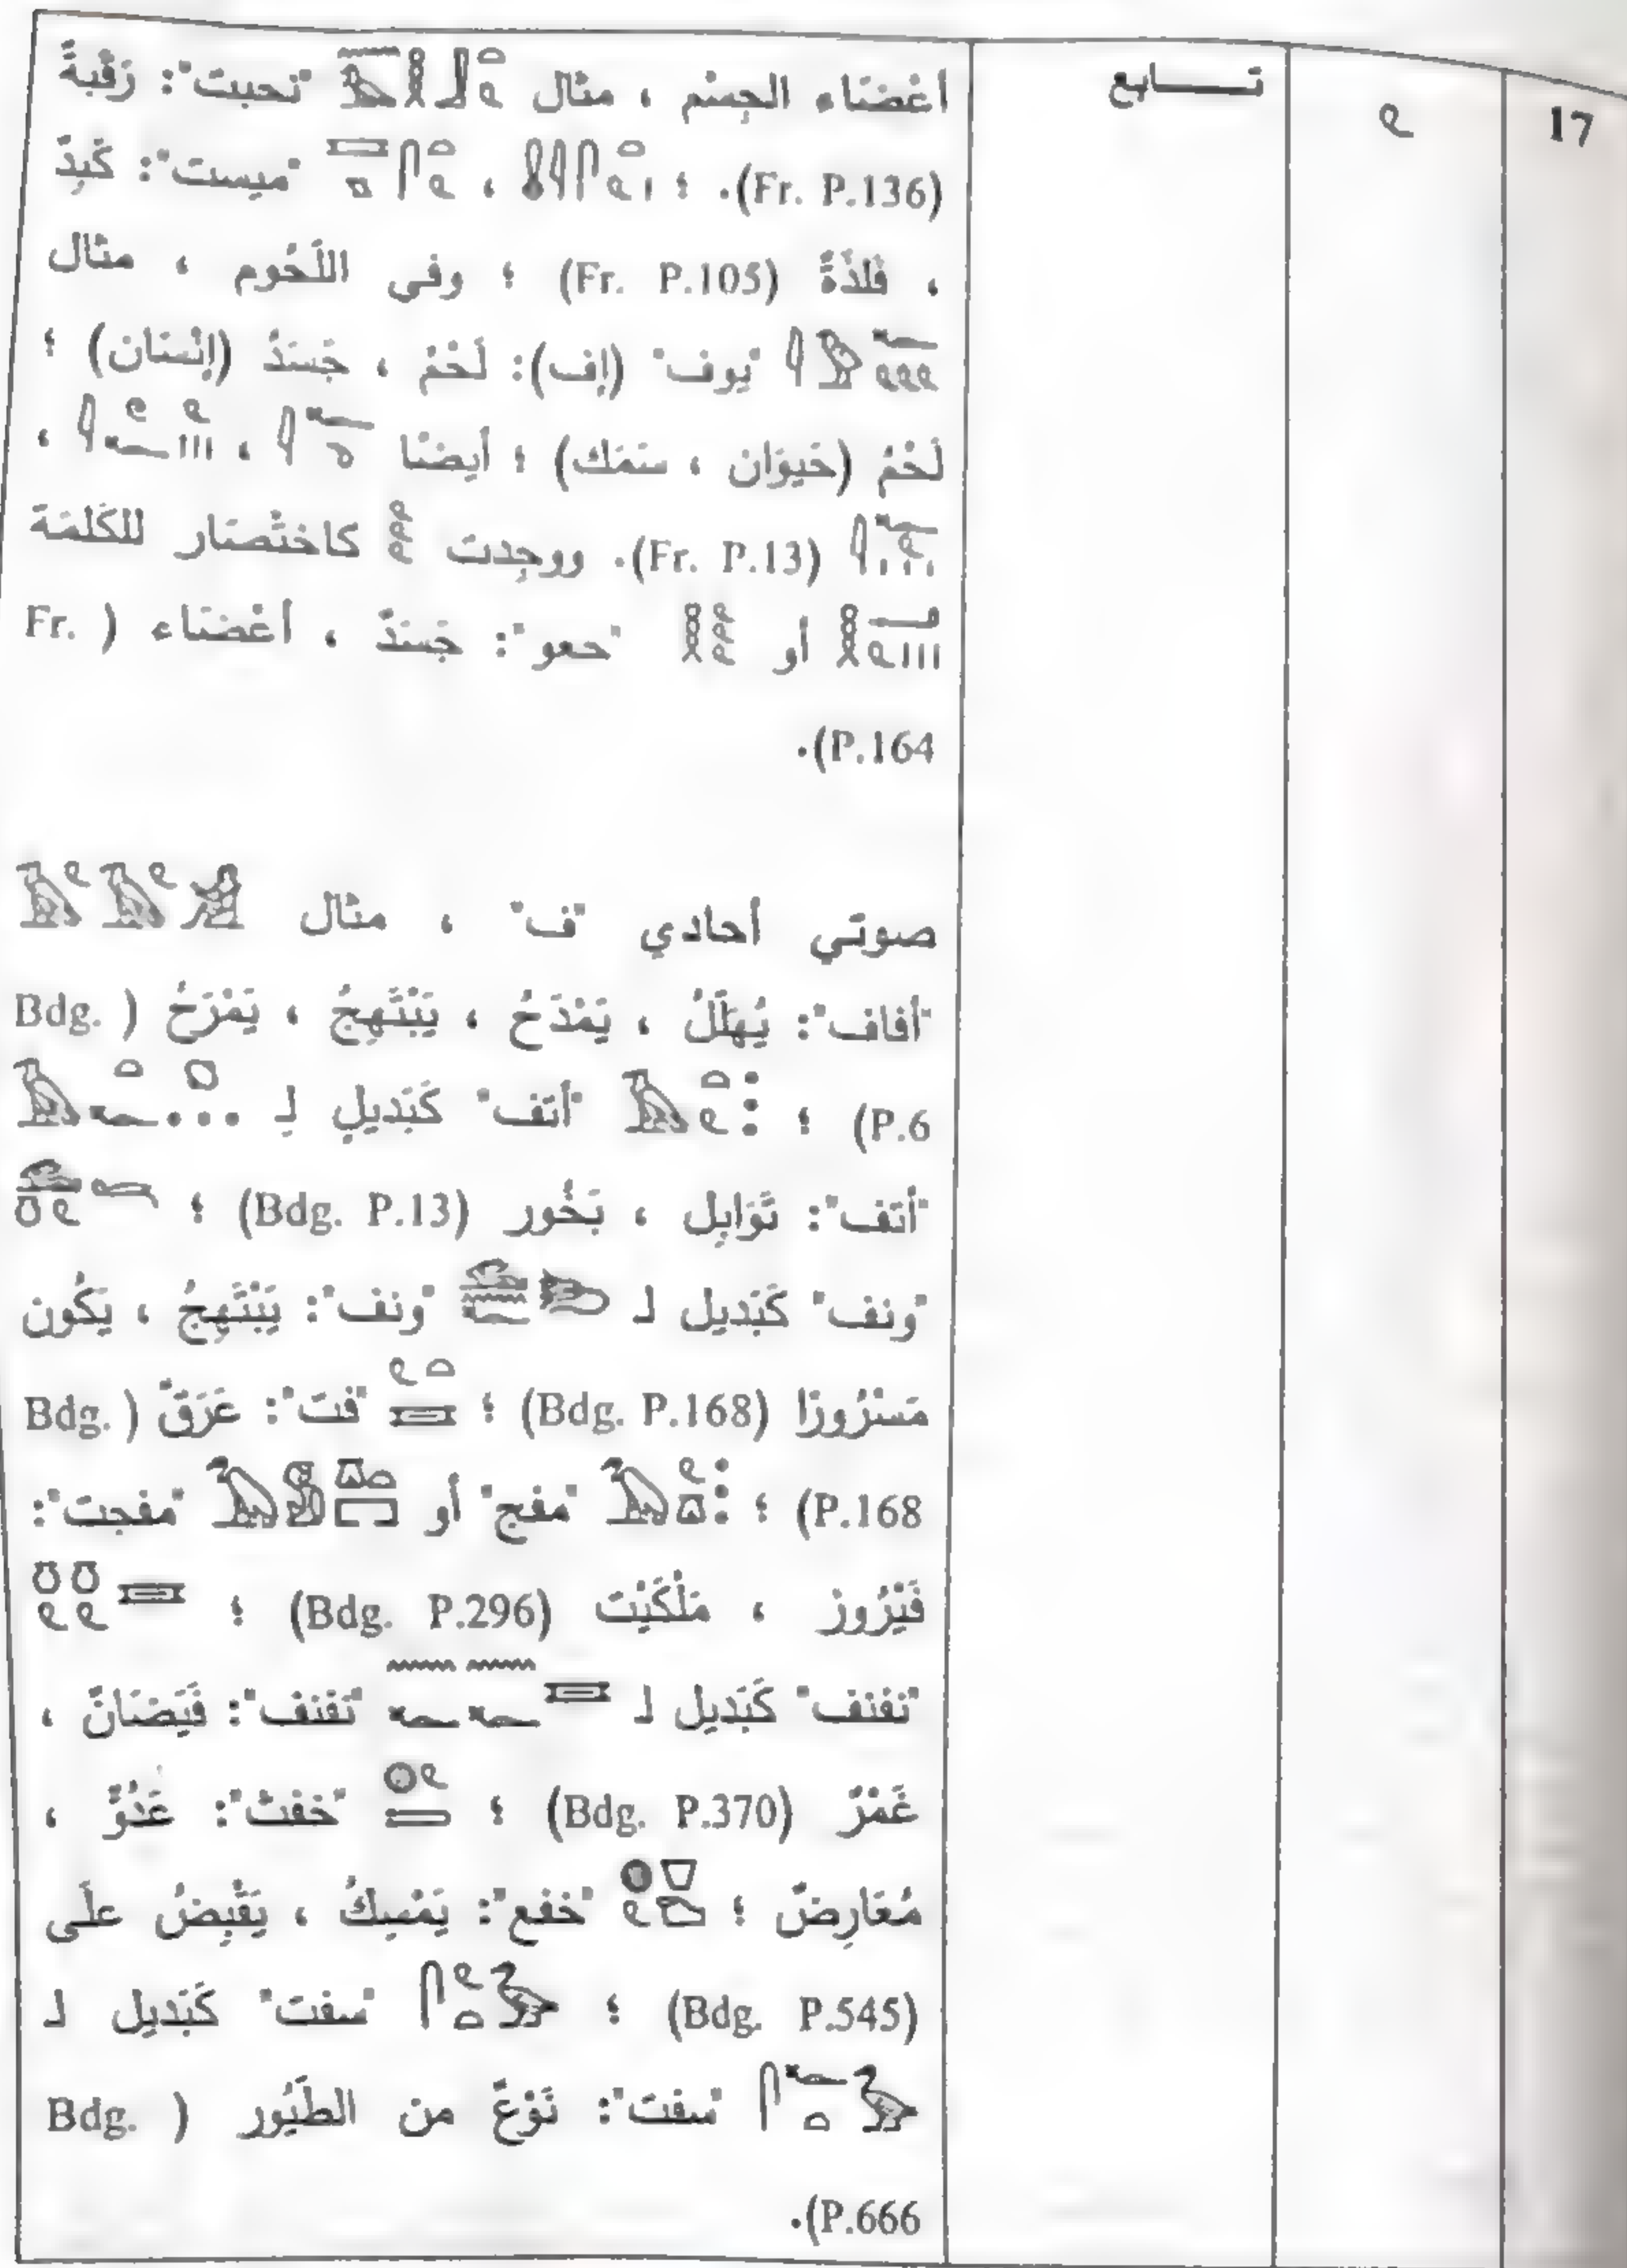 17
تـــابع
أعْضَاء الجِسْم ، مثال "نحبت": رَقْبةً
(Fr. P.136). ؛ ، "ميست": كَبِدٌ
، فَلذَةً (Fr. P.105) ؛ وفي اللَحُوم ، مثال
"يوف" (إف): لَحْمٌ ، جَسَدُ (إنْسَان) ؛
لَحْمُ (حَيوَان ، سَمَك) ؛ أيضًا ، ،
(Fr. P.13). ووجِدت كاختْصَار للكَلمَة
أو "حعو": جَسَدٌ ، أعْضَاء (Fr.
P.164).
صوتي أحادي "ف" ، مثال
"أفاف": يُهَلَلُ ، يَمْدَحُ ، يَبْتَهِجُ ، يَمْرَحُ (Bdg.
P.6) ؛ "أتف" كَبَديلٍ لـِ
"أتف": تَوَابِل ، بَخُور (Bdg. P.13) ؛
"ونف" كَبَديل لـ "ونف": يَبْتَهِجُ ، يَكُون
مَسْرُورًا (Bdg. P.168) ؛ "فت": عَرَقٌ (Bdg.
P.168) ؛ "مفج" أو "مفجت":
فَيْرُوز ، مَلْكَيْت (Bdg. P.296) ؛
"نفنف" كَبَديل لـ "نفنف": فَيَضَانٌ ،
غَمْرٌ (Bdg. P.370) ؛ "خفث": عَدُوٌ ،
مُعَارِضٌ ؛ "خفع": يَمْسِكُ ، يَقْبِضُ علَى
(Bdg. P.545) ؛ "سفت" كَبَديل لـ
"سفت": نَوْعٌ من الطَيُور (Bdg.
P.666).